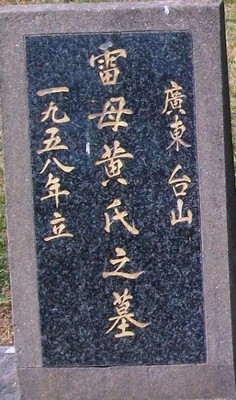 廣東 台山
雷母黄氏之墓
一九五八年立